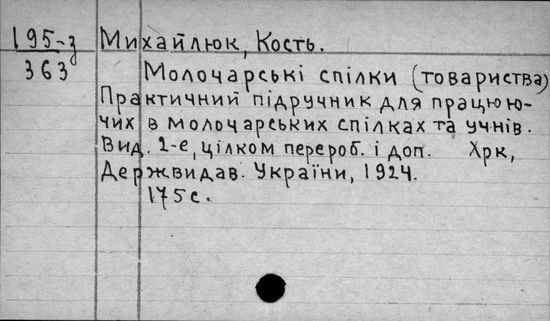 195-з Михайлюк, Кость.
363 Молочарські спілки (товариства)
Практичний підручник для працюю-
чих в молочарських спілках та учнів.
Вид. 2-е, цілком перероб. і доп. Хрк,
Держвидав. України, 1924.
175с.